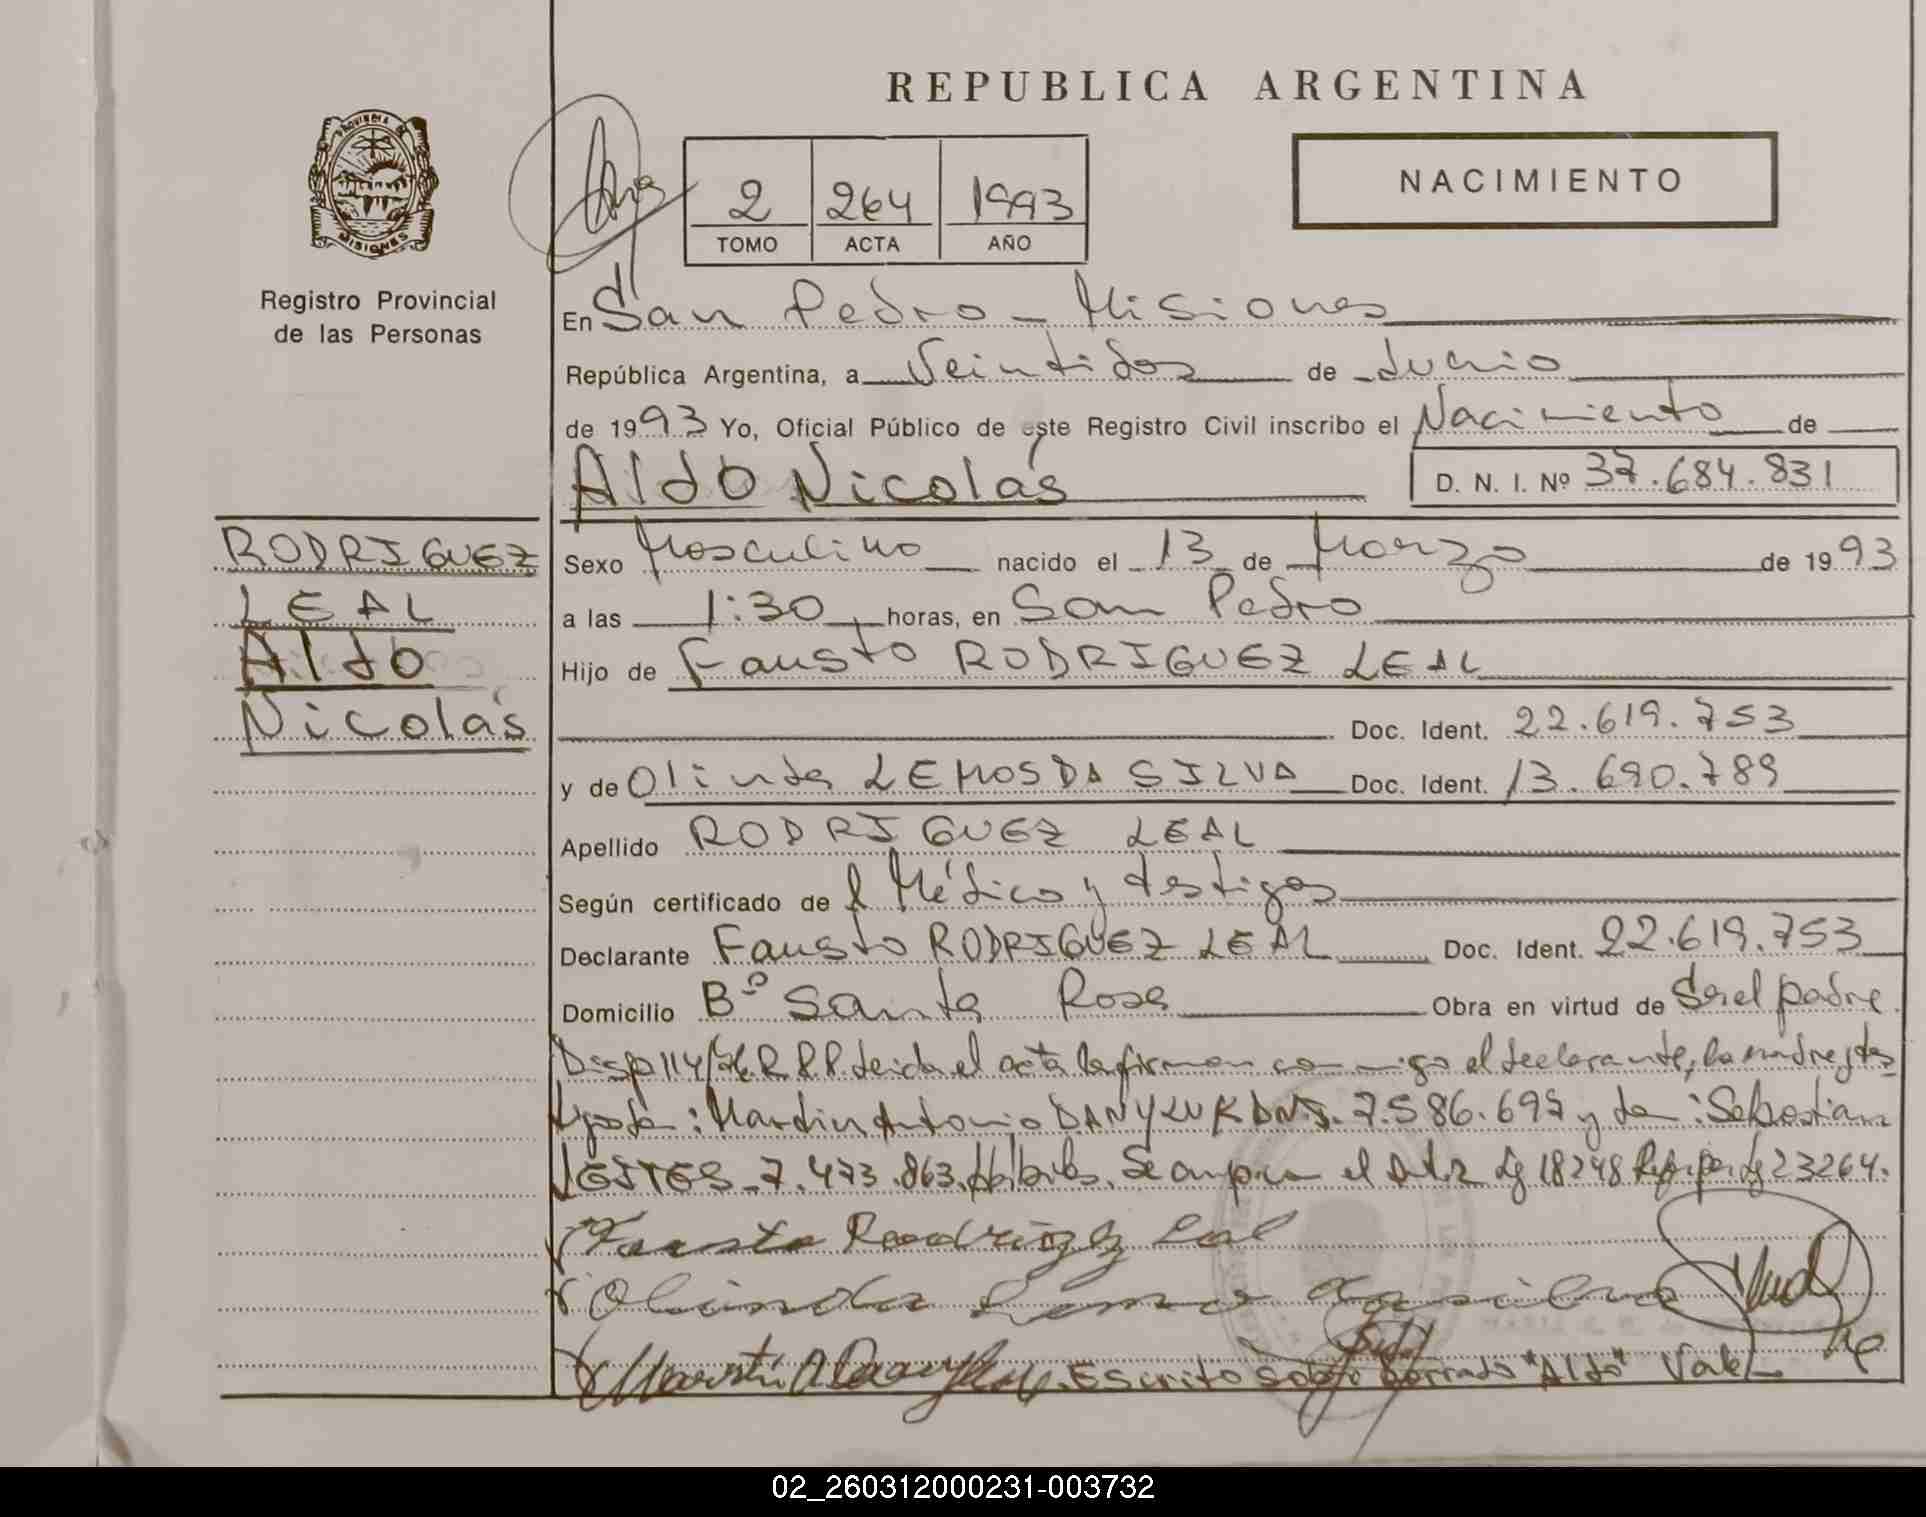 REPUBLICA ARGENTINA
NACIMIENTO
2 264 1993
TOMO ACTA AÑO
PROVINCIA DE
MISIONES
Registro Provincial
de las Personas
En San Pedro - Misiones
República Argentina, a Veintidos de Junio
de 1993 Yo, Oficial Público de este Registro Civil inscribo el Nacimiento de
Aldo Nicolás D. N. I. Nº 37.684.831
RODRIGUEZ
LEAL
Aldo
Nicolás
Sexo Masculino nacido el 13 de Marzo de 1993
a las 1:30 horas, en San Pedro
Hijo de Fausto RODRIGUEZ LEAL
Doc. Ident. 22.619.753
y de Olinda LEMOS DA SILVA Doc. Ident. 13.690.789
Apellido RODRIGUEZ LEAL
Según certificado de Médico y testigos
Declarante Fausto RODRIGUEZ LEAL Doc. Ident. 22.619.753
Domicilio Bº Santa Rosa Obra en virtud de Ser el padre
Disp 114/ R.P.P. Leida el acta la firman conmigo el declarante, la madre y los
: Martin Antonio DANYLUK DNI. 7.586.697 y : Sebastian
7.473.863. Habiles. Se el Art. 2 Ley 18248 por Ley 23264.
Fausto Rodriguez Leal
Olinda Lemos da silva
Martin A Danyluk. Escrito sobre borrado "Aldo" Vale
02_260312000231-003732